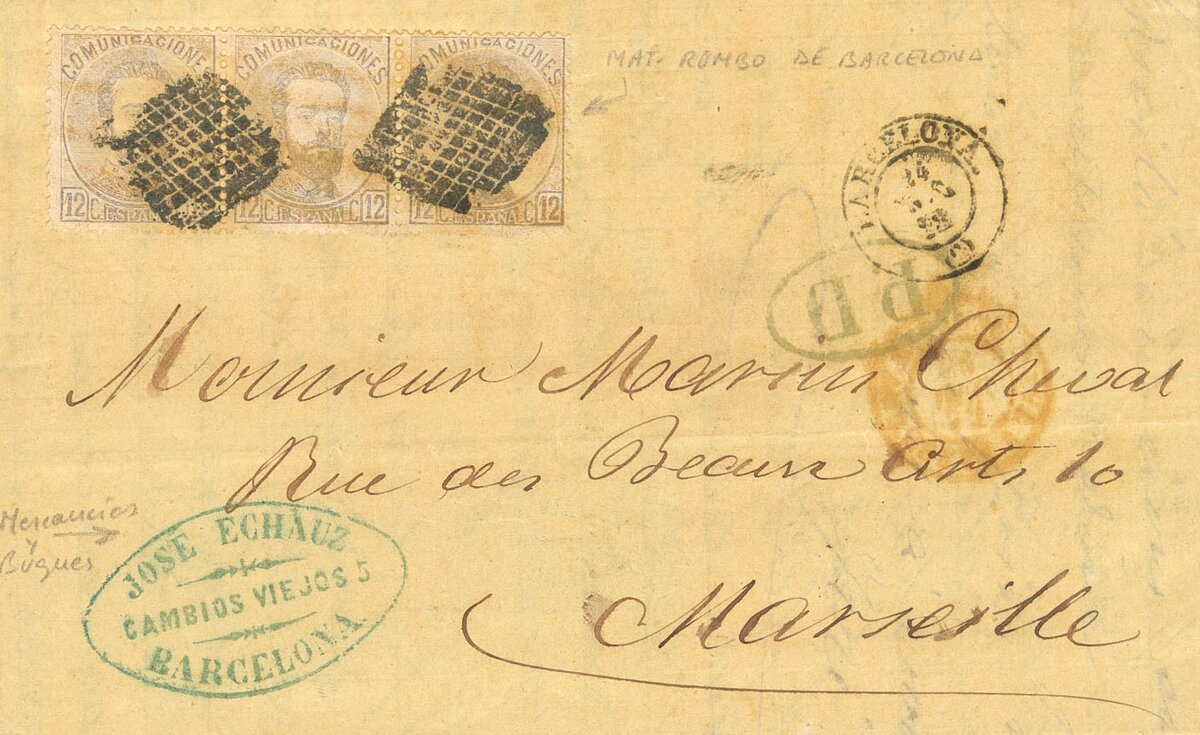 COMUNICACIONES COMUNICACIONES COMUNICACIONES
12 C. ESPAÑA C. 12 C. ESPAÑA C. 12 C. ESPAÑA C. 12
MAT. ROMBO DE BARCELONA
BARCELONA
P.D
Monsieur Marius Cheval
Rue des Beaux Arts 10
Marseille
Mercancias
y
Buques
JOSE ECHÁUZ
CAMBIOS VIEJOS 5
BARCELONA